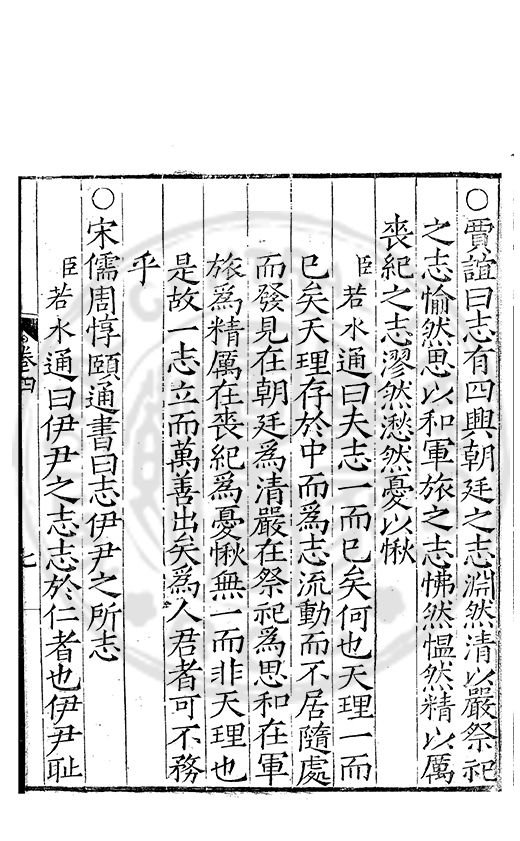 ○賈誼曰志有四興朝廷之志淵然清以嚴祭祀
之志愉然思以和軍旅之志怫然愠然精以厲
喪紀之志漻然愁然憂以愀
臣若水通曰夫志一而已矣何也天理一而
已矣天理存於中而為志流動而不居隨處
而發見在朝廷為清嚴在祭祀為思和在軍
旅為精厲在喪紀為憂愀無一而非天理也
是故一志立而萬善出矣為人君者可不務
乎
○宋儒周惇頤通書曰志伊尹之所志
臣若水通曰伊尹之志志於仁者也伊尹耻
卷四
七